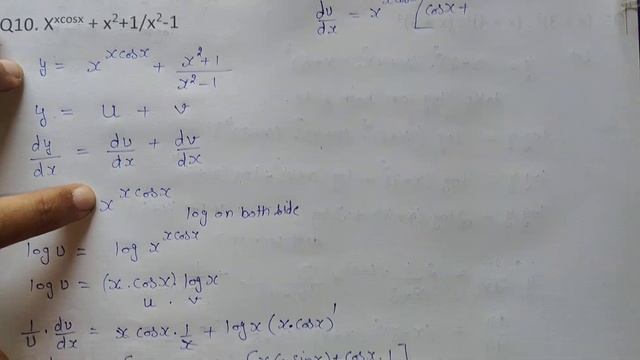 Q10. X^xcosx + x²+1/x²-1
y = x^xcosx + (x²+1)/(x²-1)
y = u + v
dy/dx = du/dx + dv/dx
x^xcosx
log on both side
log u = log x^xcosx
log u = (x.cosx) log x
u . v
1/u . du/dx = x cosx . 1/x + log x (x.cosx)'
[x(-sinx) + cosx . 1]
du/dx = x^xcosx [cosx +